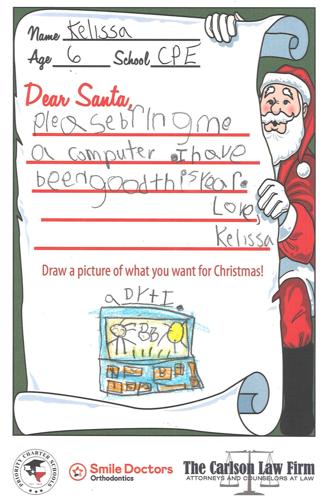 Name Kelissa
Age 6 School CPE
Dear Santa,
please bring me
a computer I have
been good this year.
Love,
Kelissa
Draw a picture of what you want for Christmas!
PRIORITY CHARTER SCHOOLS
Smile Doctors
Orthodontics
The Carlson Law Firm
ATTORNEYS AND COUNSELORS AT LAW